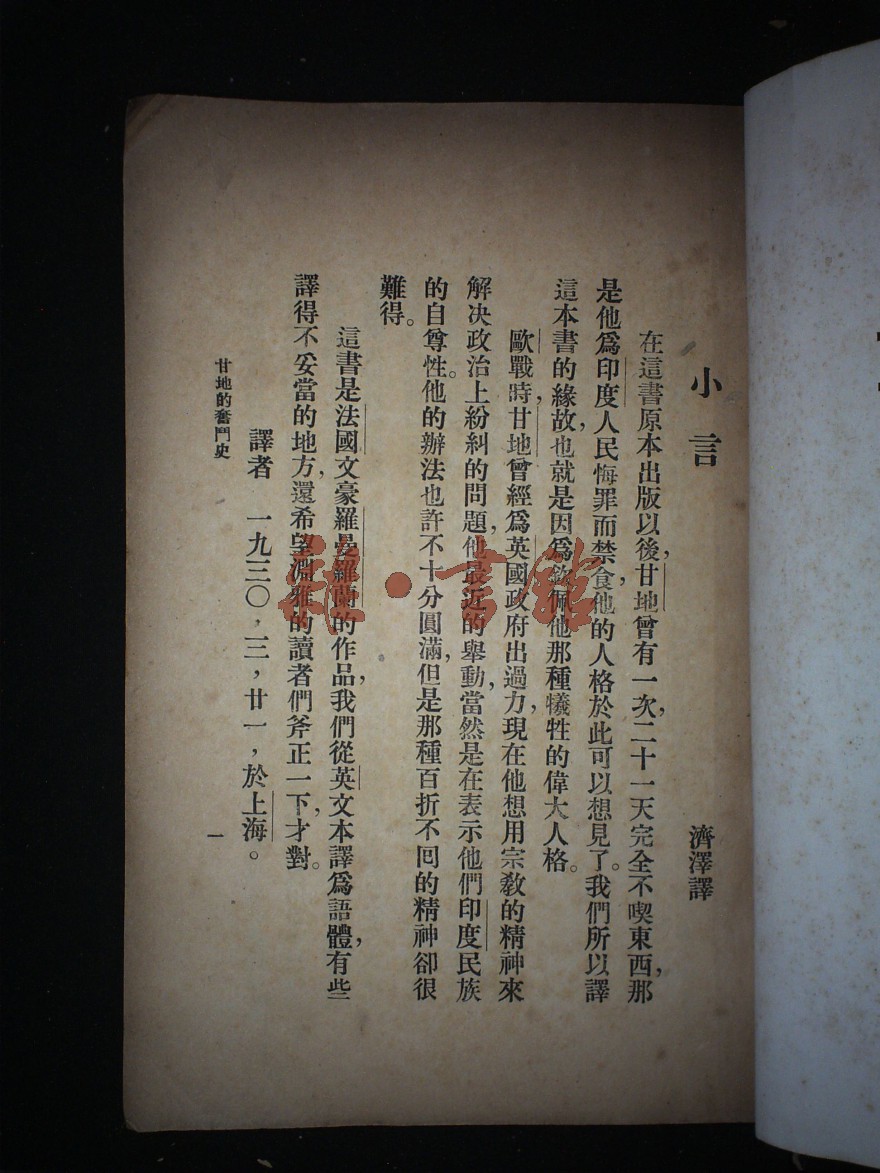 小言
濟澤譯
在這書原本出版以後，甘地曾有一次，二十一天完全不喫東西，那
是他爲印度人民悔罪而禁食，他的人格於此可以想見了。我們所以譯
這本書的緣故，也就是因爲欽佩他那種犧牲的偉大人格。
歐戰時，甘地曾經爲英國政府出過力，現在他想用宗敎的精神來
解決政治上紛糾的問題，他最近的舉動，當然是在表示他們印度民族
的自尊性。他的辦法也許不十分圓滿，但是那種百折不囘的精神卻很
難得。
這書是法國文豪羅曼羅蘭的作品，我們從英文本譯爲語體，有些
譯得不妥當的地方，還希望淵雅的讀者們斧正一下，才對。
譯者 一九三〇，三，廿一，於上海。
甘地的奮鬥史
一
羅·書館